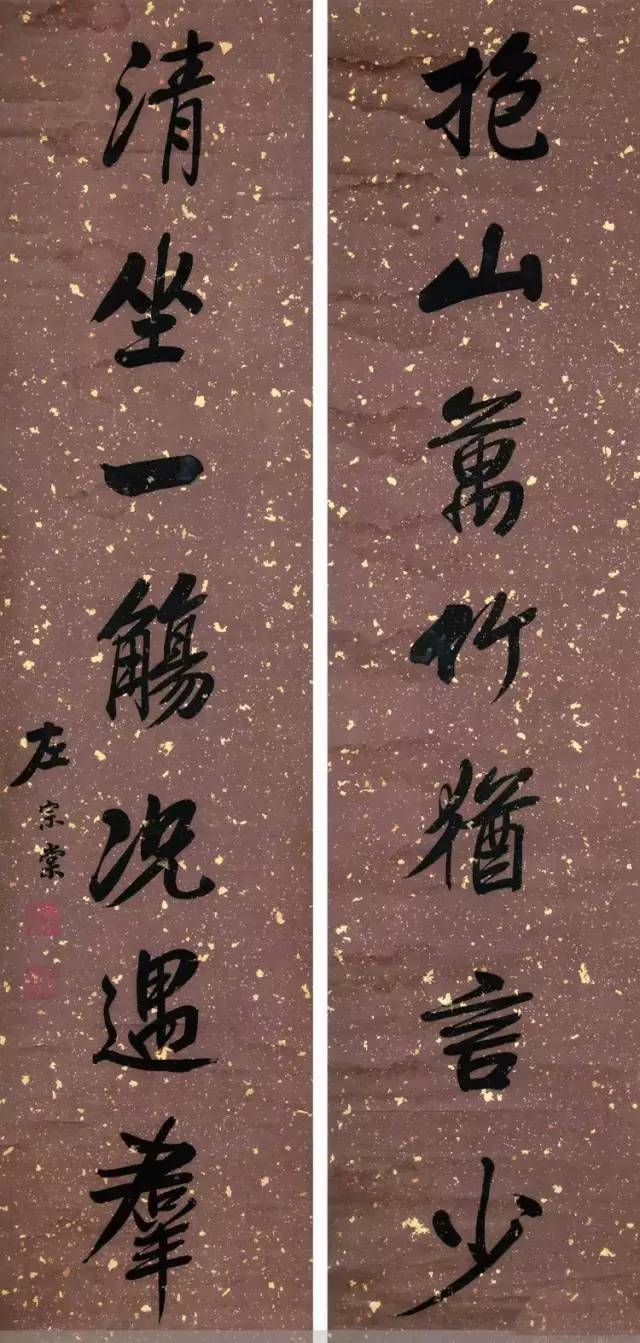 抱山萬竹猶言少
清坐一觴况遇羣
左宗棠